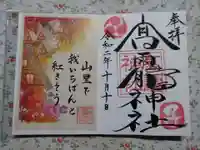 奉拝
高屋神社
令和二年十月十日
山里で
我いちばんと
紅きそう